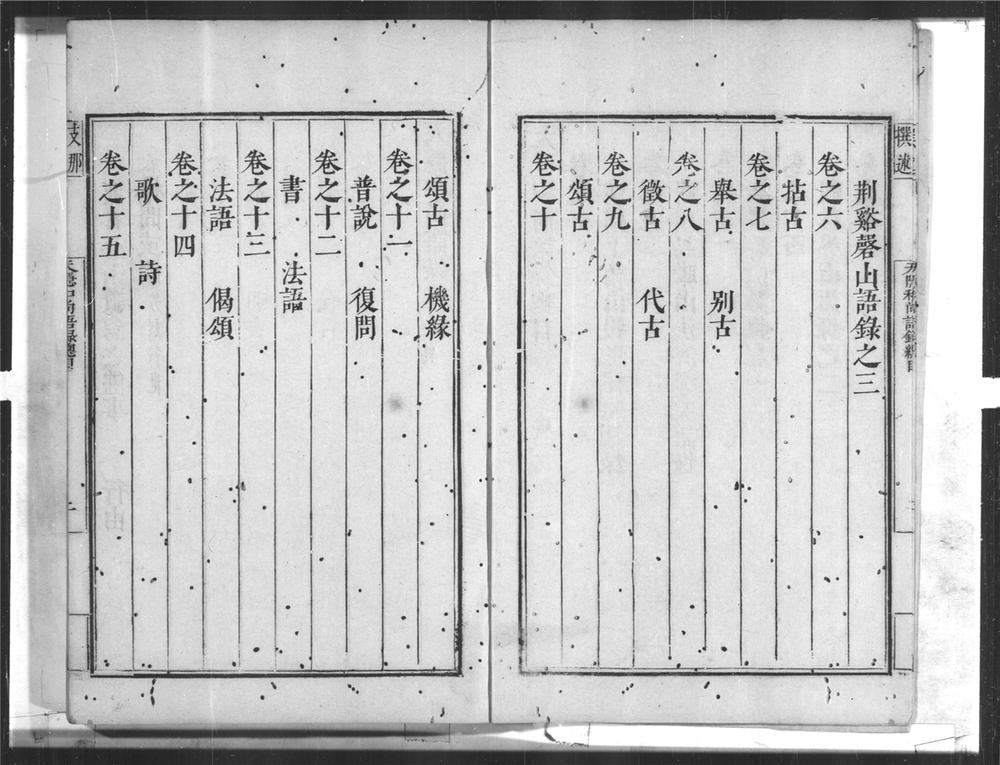 撰述
荆谿磬山語錄之三
卷之六
拈古
卷之七
舉古 别古
卷之八
徵古 代古
卷之九
頌古
卷之十
頌古 機緣
卷之十一
普說 復問
卷之十二
書 法語
卷之十三
法語 偈頌
卷之十四
歌 詩
卷之十五
支那